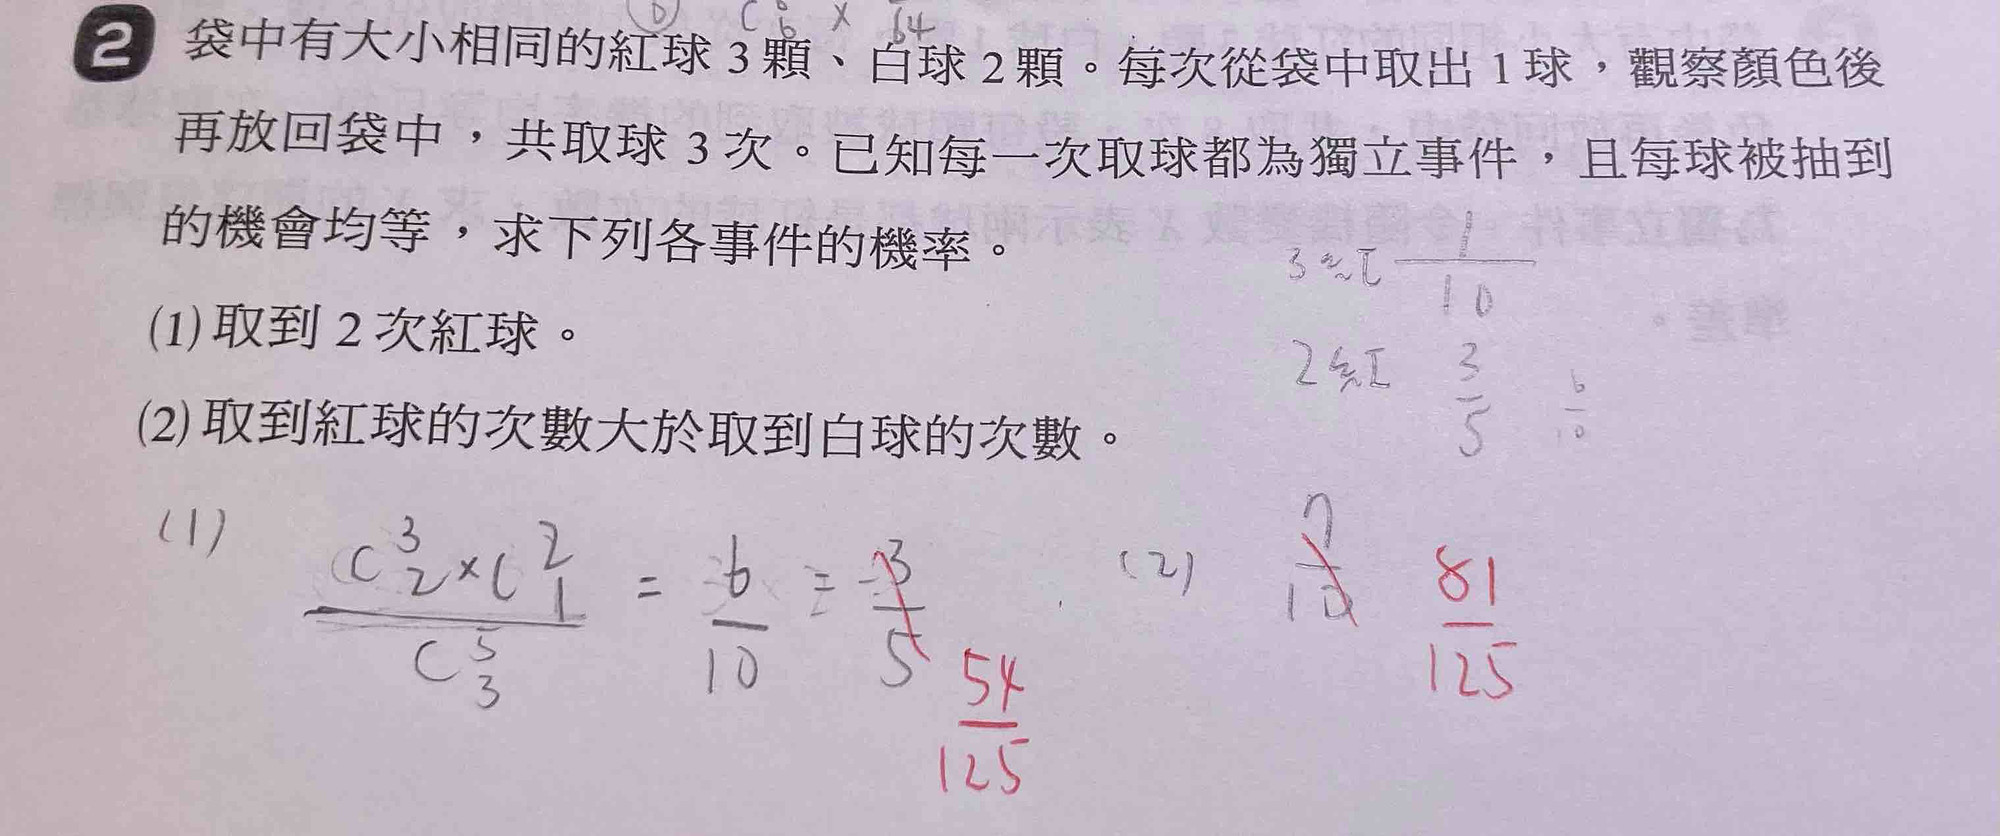 C 6 6 × 64
2 袋中有大小相同的紅球 3 顆、白球 2 顆。每次從袋中取出 1 球，觀察顏色後
再放回袋中，共取球 3 次。已知每一次取球都為獨立事件，且每球被抽到
的機會均等，求下列各事件的機率。
3紅 1/10
(1) 取到 2 次紅球。
2紅 3/5 6/10
(2) 取到紅球的次數大於取到白球的次數。
(1) C^3_2×C^2_1 / C^5_3 = 6/10 = 3/5 54/125
(2) 7/10 81/125